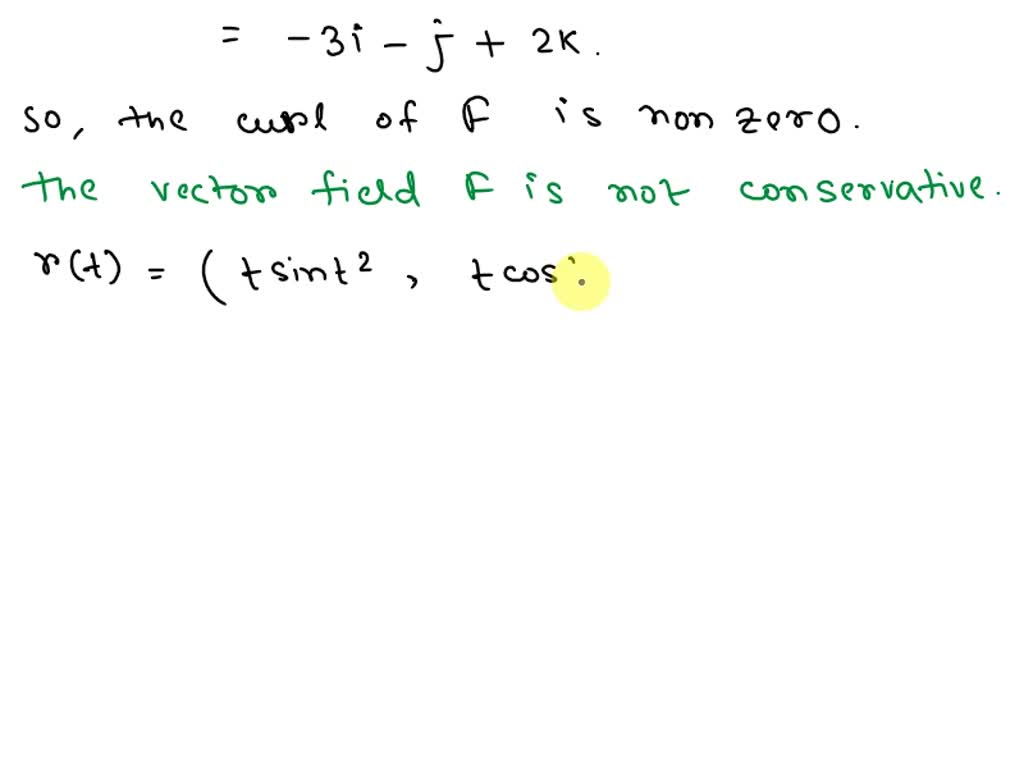 = -3i - j + 2k.
so, the curl of F is non zero.
the vector field F is not conservative.
r(t) = (t sint², t cos